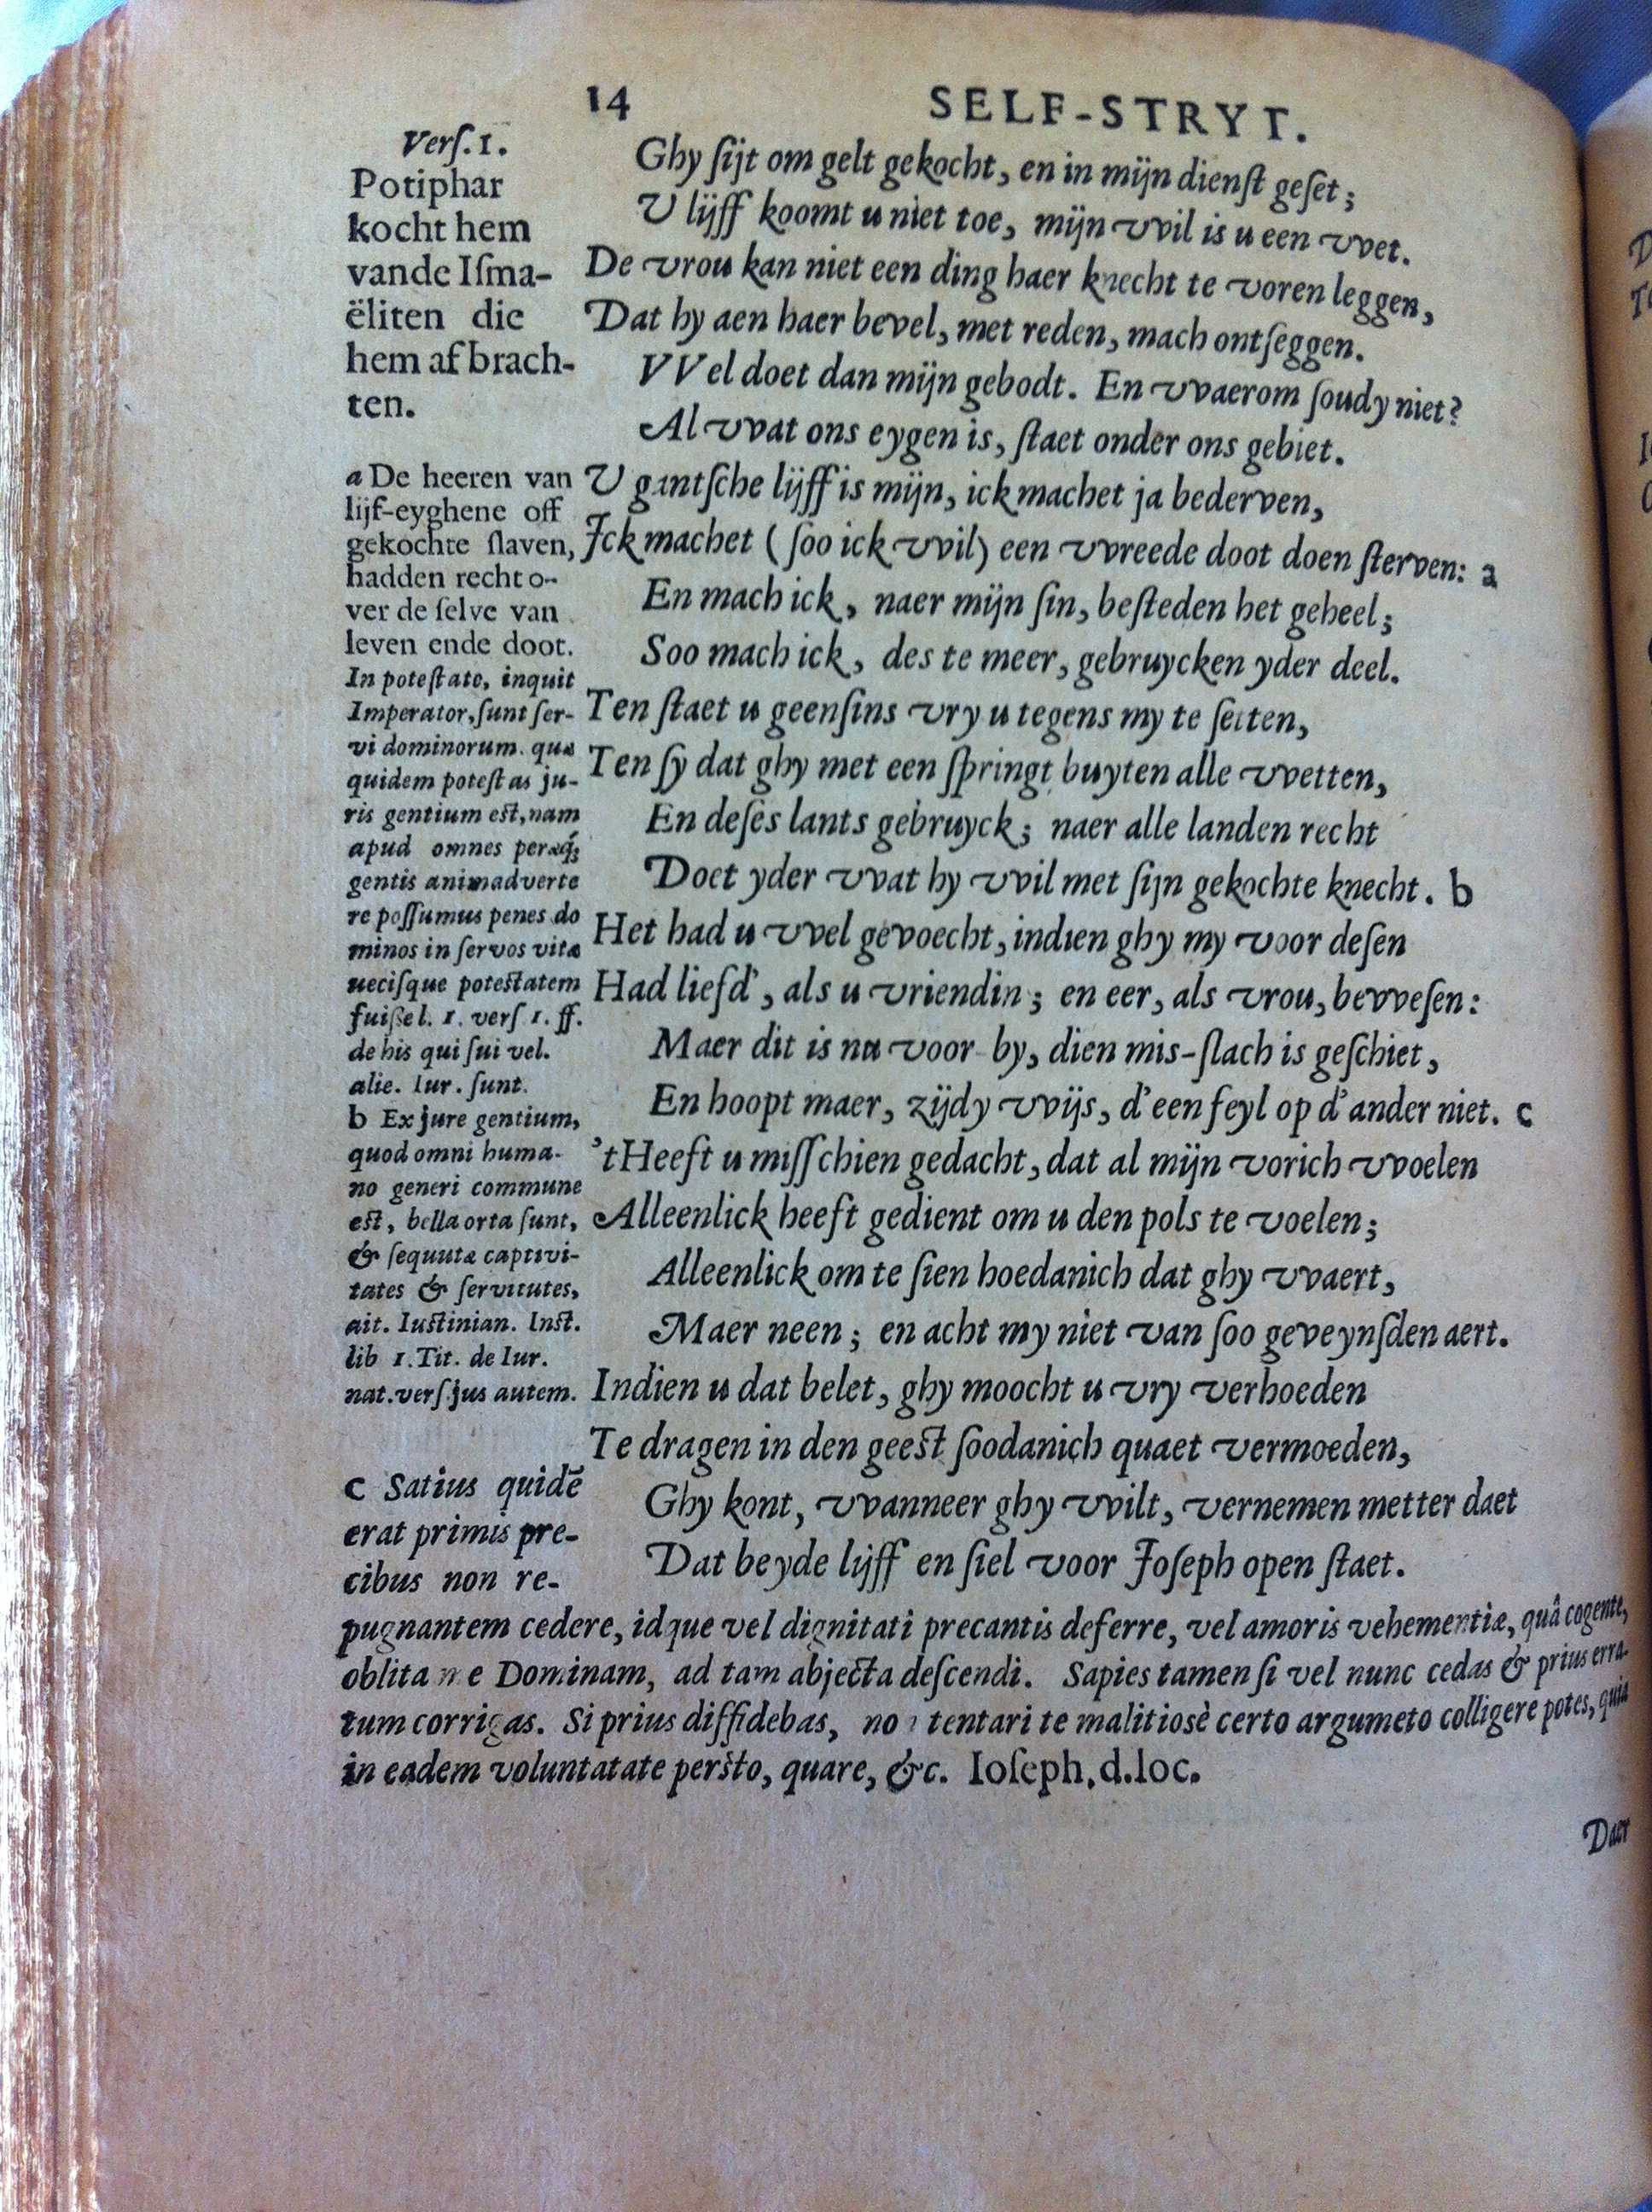 14 SELF-STRYT.
Verſ. 1.
Potiphar
kocht hem
vande Iſma-
ëliten die
hem af brach-
ten.
a De heeren van
lijf-eyghene off
gekochte ſlaven,
hadden recht o-
ver de ſelve van
leven ende doot.
In poteſtate, inquit
Imperator, ſunt ſer-
vi dominorum. quæ
quidem poteſtas ju-
ris gentium eſt, nam
apud omnes peræq́;
gentis animadverte
re poſſumus penes do
minos in ſervos vitæ
neciſque poteſtatem
fuiße l. 1. verſ 1. ff.
de his qui ſui vel.
alie. Iur. ſunt.
b Ex jure gentium,
quod omni huma-
no generi commune
eſt, bella orta ſunt,
& ſequutæ captivi-
tates & ſervitutes,
ait. Iuſtinian. Inſt.
lib 1. Tit. de Iur.
nat. verſ. jus autem.
Ghy ſijt om gelt gekocht, en in mijn dienſt geſet;
U lijff koomt u niet toe, mijn vvil is u een vvet.
De vrou kan niet een ding haer knecht te voren leggen,
Dat hy aen haer bevel, met reden, mach ontſeggen.
VVel doet dan mijn gebodt. En vvaerom ſoudy niet?
Al vvat ons eygen is, ſtaet onder ons gebiet.
U gantſche lijff is mijn, ick machet ja bederven,
Ick machet (ſoo ick vvil) een vvreede doot doen ſterven: a
En mach ick, naer mijn ſin, beſteden het geheel;
Soo mach ick, des te meer, gebruycken yder deel.
Ten ſtaet u geenſins vry u tegens my te ſetten,
Ten ſy dat ghy met een ſpringt buyten alle vvetten,
En deſes lants gebruyck; naer alle landen recht
Doet yder vvat hy vvil met ſijn gekochte knecht. b
Het had u vvel gevoecht, indien ghy my voor deſen
Had liefd', als u vriendin; en eer, als vrou, bevveſen:
Maer dit is nu voor-by, dien mis-ſlach is geſchiet,
En hoopt maer, zijdy vvijs, d'een feyl op d'ander niet. c
'tHeeft u miſſchien gedacht, dat al mijn vorich vvoelen
Alleenlick heeft gedient om u den pols te voelen;
Alleenlick om te ſien hoedanich dat ghy vvaert,
Maer neen; en acht my niet van ſoo geveynſden aert.
Indien u dat belet, ghy moocht u vry verhoeden
Te dragen in den geeſt ſoodanich quaet vermoeden,
Ghy kont, vvanneer ghy vvilt, vernemen metter daet
Dat beyde lijff en ſiel voor Joſeph open ſtaet.
c Satius quidē
erat primis pre-
cibus non re-
pugnantem cedere, idque vel dignitati precantis deferre, vel amoris vehementiæ, quâ cogente,
oblita me Dominam, ad tam abjecta deſcendi. Sapies tamen ſi vel nunc cedas & prius erra-
tum corrigas. Si prius diffidebas, non tentari te malitiosè certo argumeto colligere potes, quia
in eadem voluntatate perſto, quare, &c. Ioſeph. d. loc.
Daer